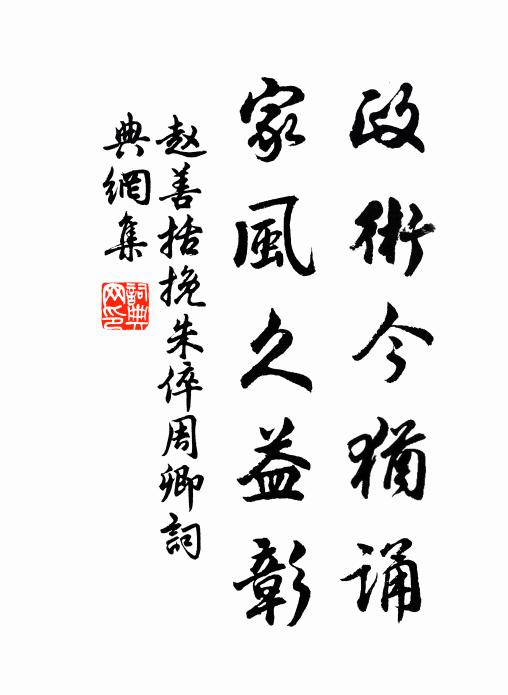 政術今猶誦
家風久益彰
赵善括挽朱倅周卿詞
典網集
詞典網印